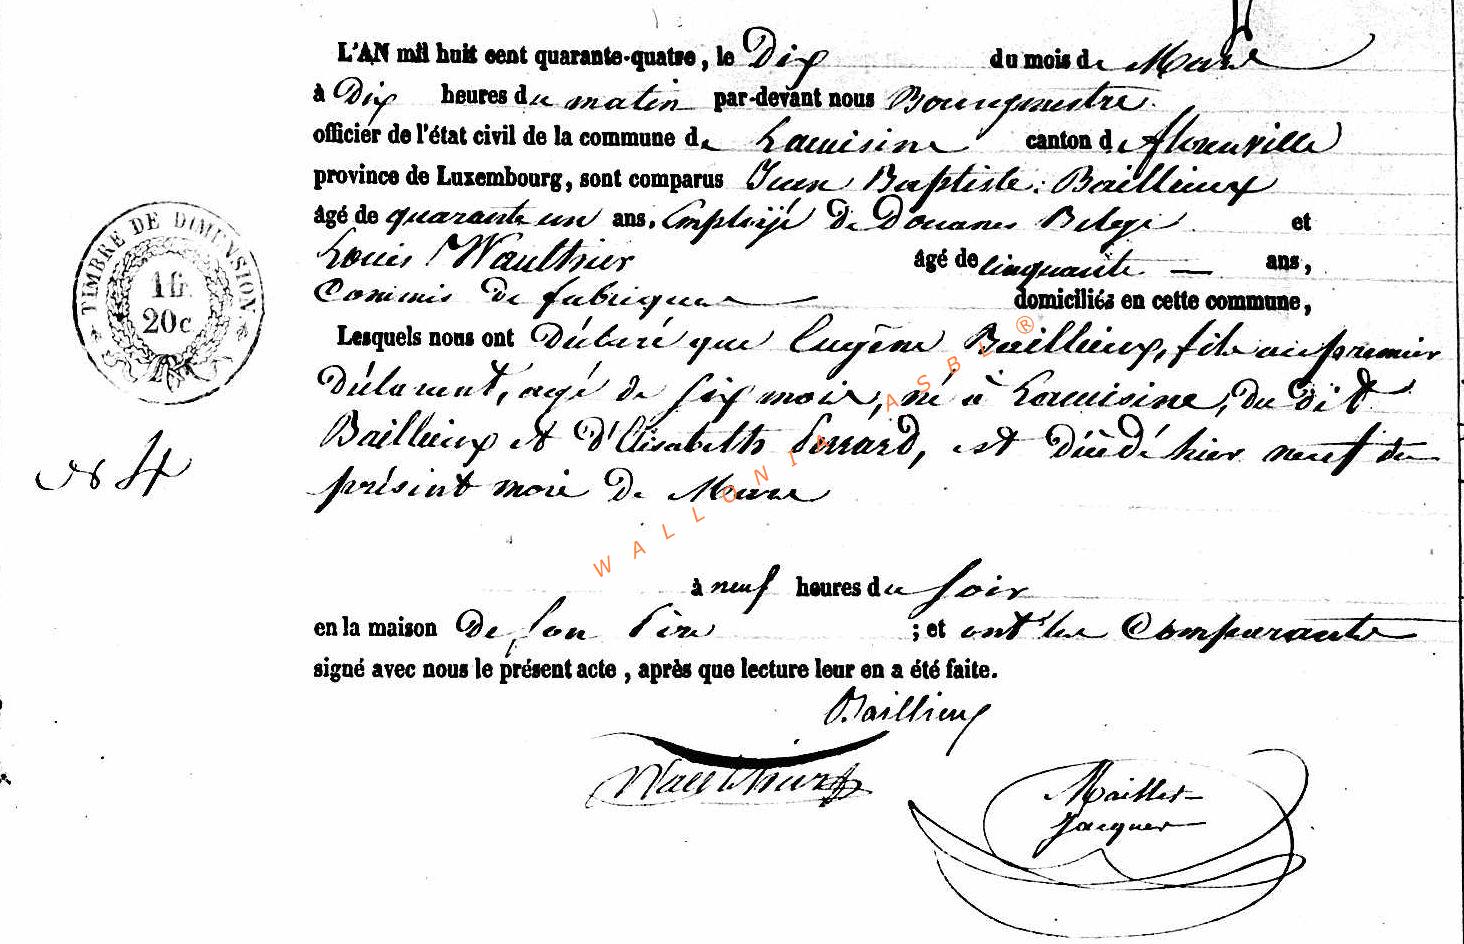 L'AN mil huit cent quarante-quatre, le Dix du mois de Mars
à Dix heures du matin par-devant nous Bourgmestre
officier de l'état civil de la commune de Lacuisine canton de florenville
province de Luxembourg, sont comparus Jean Baptiste Baillieux
âgé de quarante un ans, Employé de Douanes Belge et
Louis Wauthier âgé de cinquante ans,
Commis de fabrique domiciliés en cette commune,
Lesquels nous ont Déclaré que Eugène Baillieux, fils au premier
Déclarant, agé de six mois, né à Lacuisine, du dit
Baillieux et d'Elisabeth Perrard, est Décédé hier neuf du
présent mois de Mars
à neuf heures du soir
en la maison de son Père ; et ont les Comparants
signé avec nous le présent acte, après que lecture leur en a été faite.
Baillieux
Wauthier
Maillet
Jacques
TIMBRE DE DIMENSION
1 fr.
20 c
N 4
WALLONIA ASBL ®